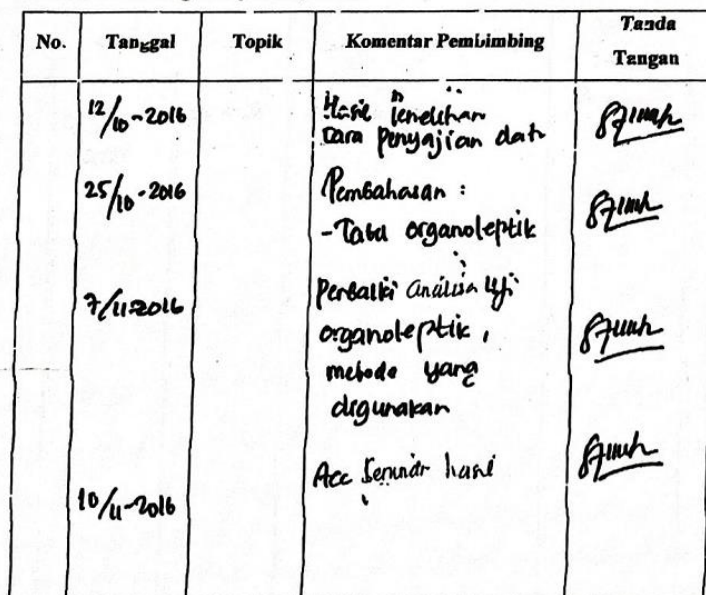 No. Tanggal Topik Komentar Pembimbing Tanda Tangan
12/10-2016 Hasil Penelitian
cara penyajian data
25/10-2016 Pembahasan :
- Tabel organoleptik
7/11-2016 Perbaiki analisa Uji
organoleptik,
metode yang
digunakan
Acc Seminar hasil
10/11-2016